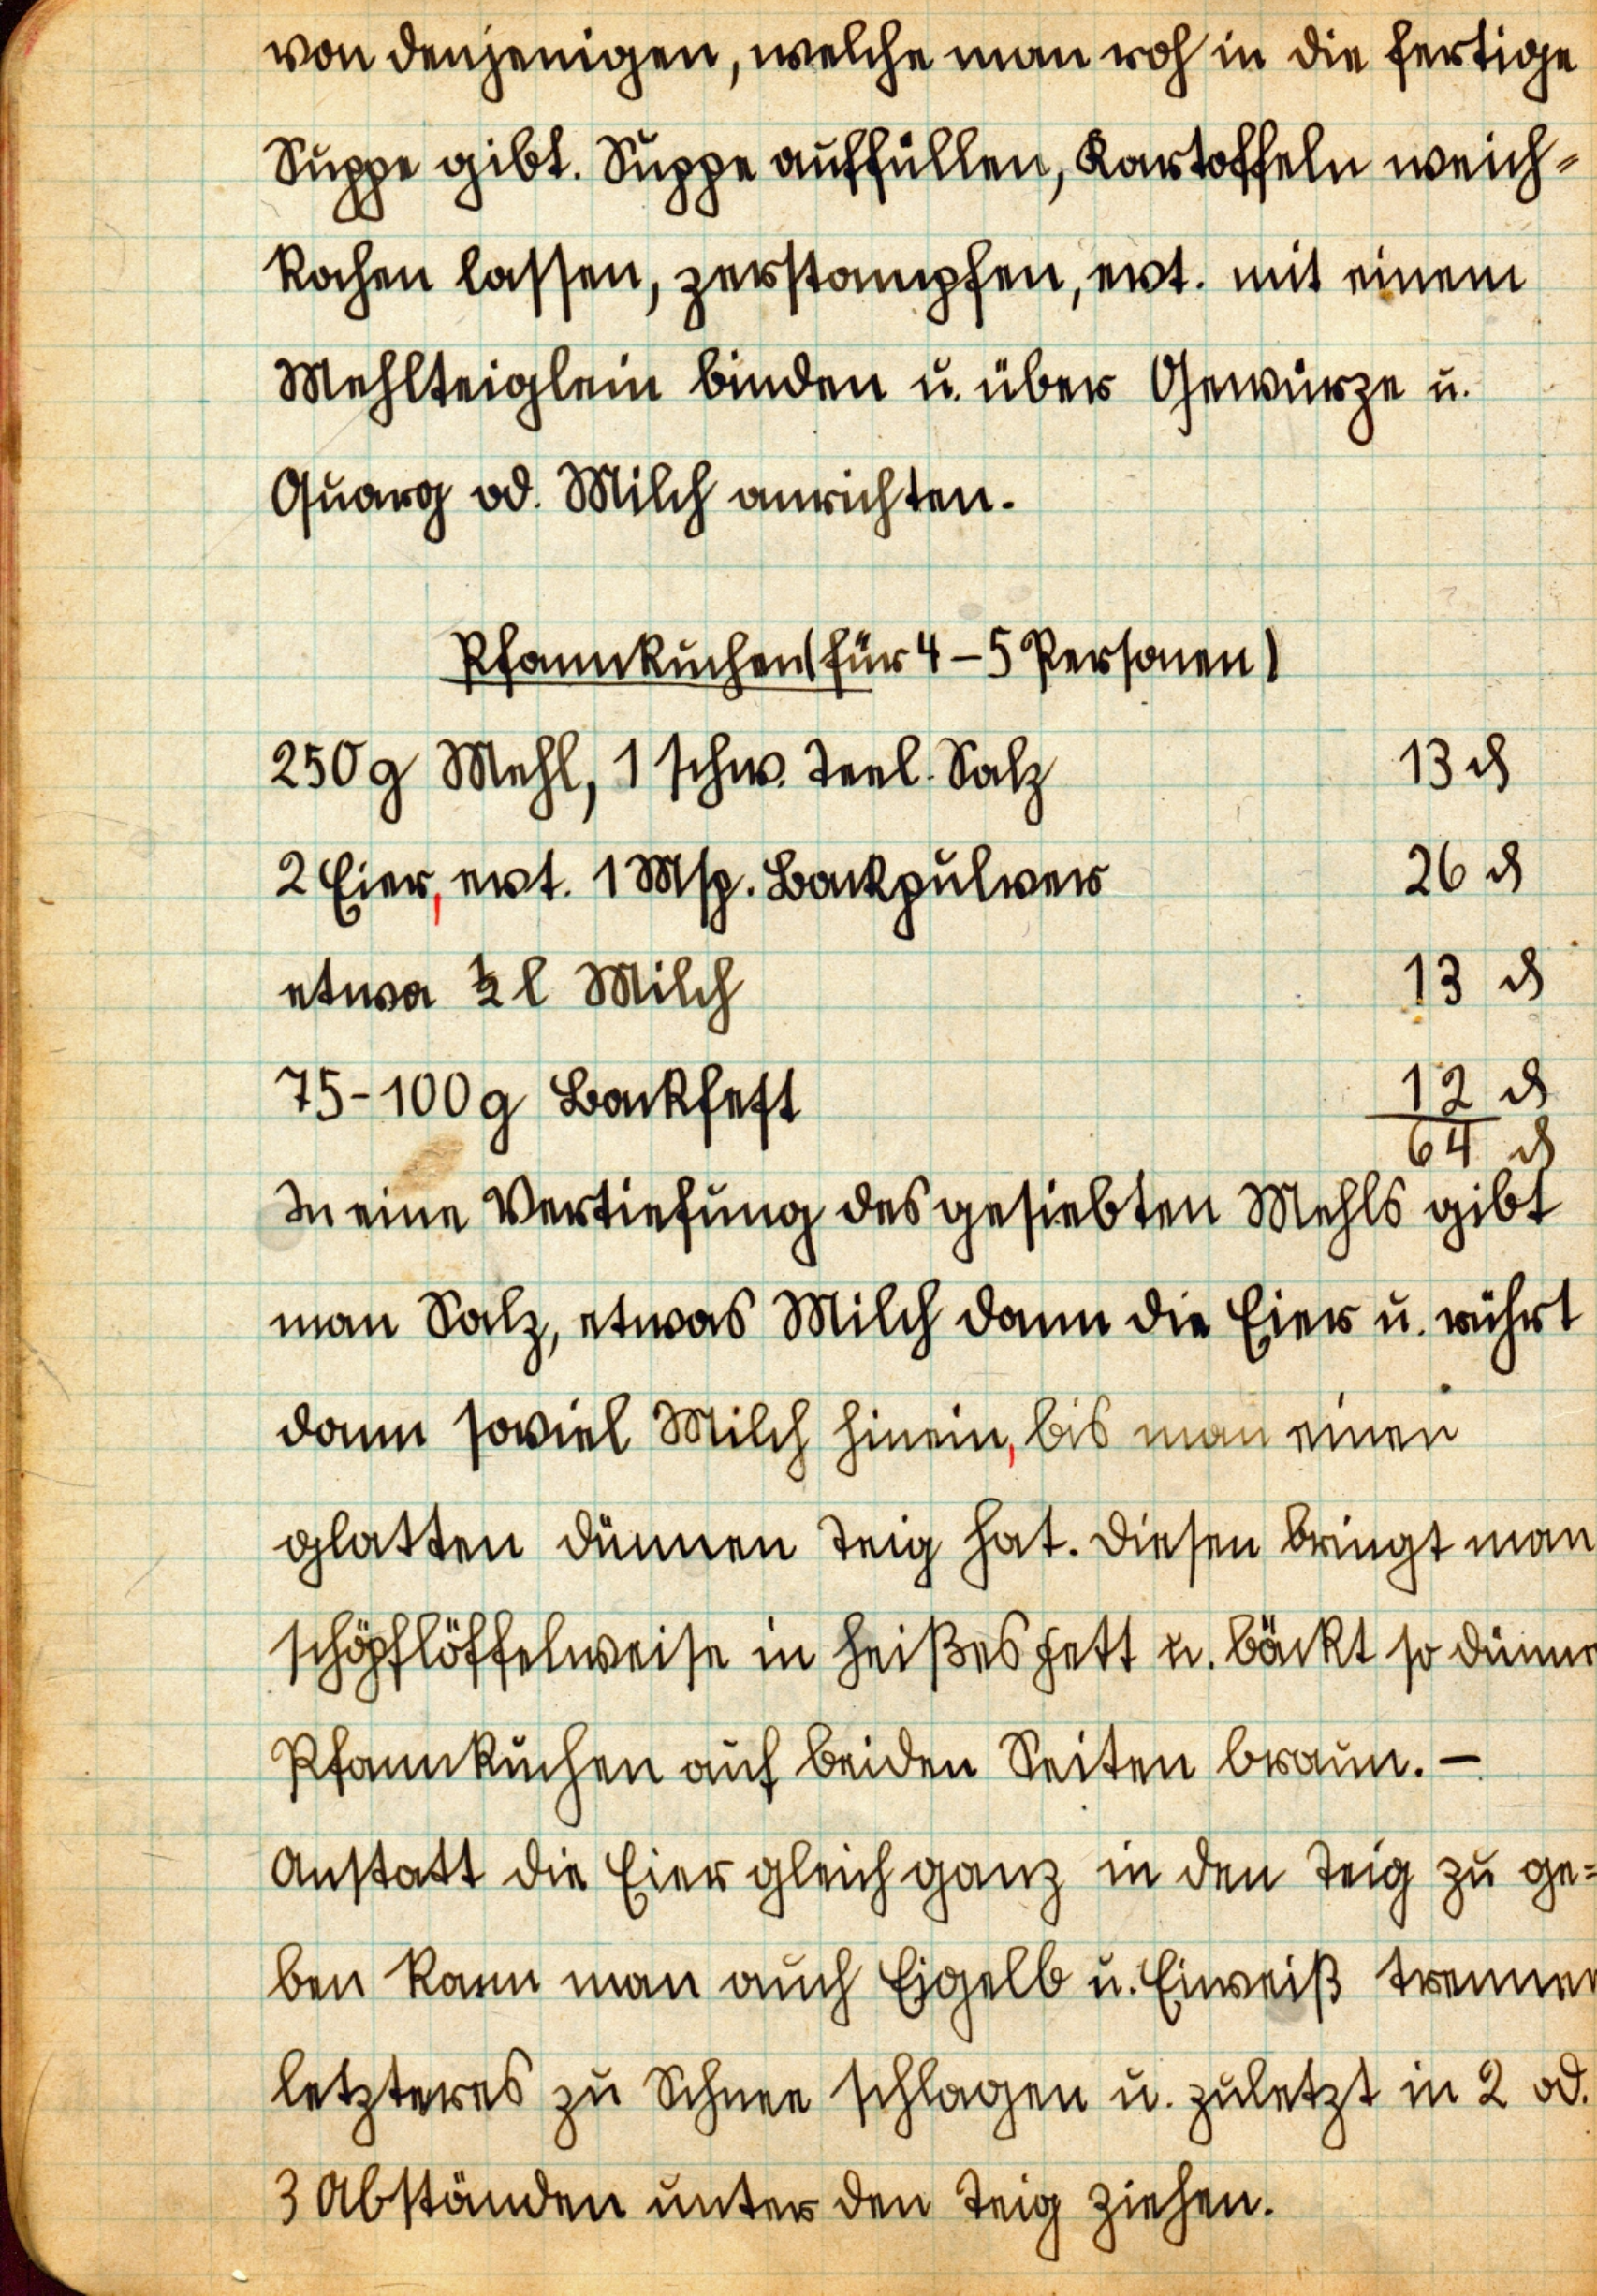 von denjenigen, welche man roh in die fertige
Suppe gibt. Suppe auffüllen, Kartoffeln weich=
kochen lassen, zerstampfen, evt. mit einem
Mehlteiglein binden u. über Gewürze u.
Quarg od. Milch anrichten.
Pfannkuchen (für 4–5 Personen)
250 g Mehl, 1 schw. Teel. Salz 13 ₰
2 Eier, evt. 1 Msp. Backpulver 26 ₰
etwa ½ l Milch 13 ₰
75-100 g Backfett 12 ₰
64 ₰
In eine Vertiefung des gesiebten Mehls gibt
man Salz, etwas Milch dann die Eier u. rührt
dann soviel Milch hinein, bis man einen
glatten dünnen Teig hat. Diesen bringt man
schöpflöffelweise in heißes Fett u. bäckt so dünne
Pfannkuchen auf beiden Seiten braun. –
Anstatt die Eier gleich ganz in den Teig zu ge=
ben kann man auch Eigelb u. Eiweiß trennen
letzteres zu Schnee schlagen u. zuletzt in 2 od.
3 Abständen unter den Teig ziehen.